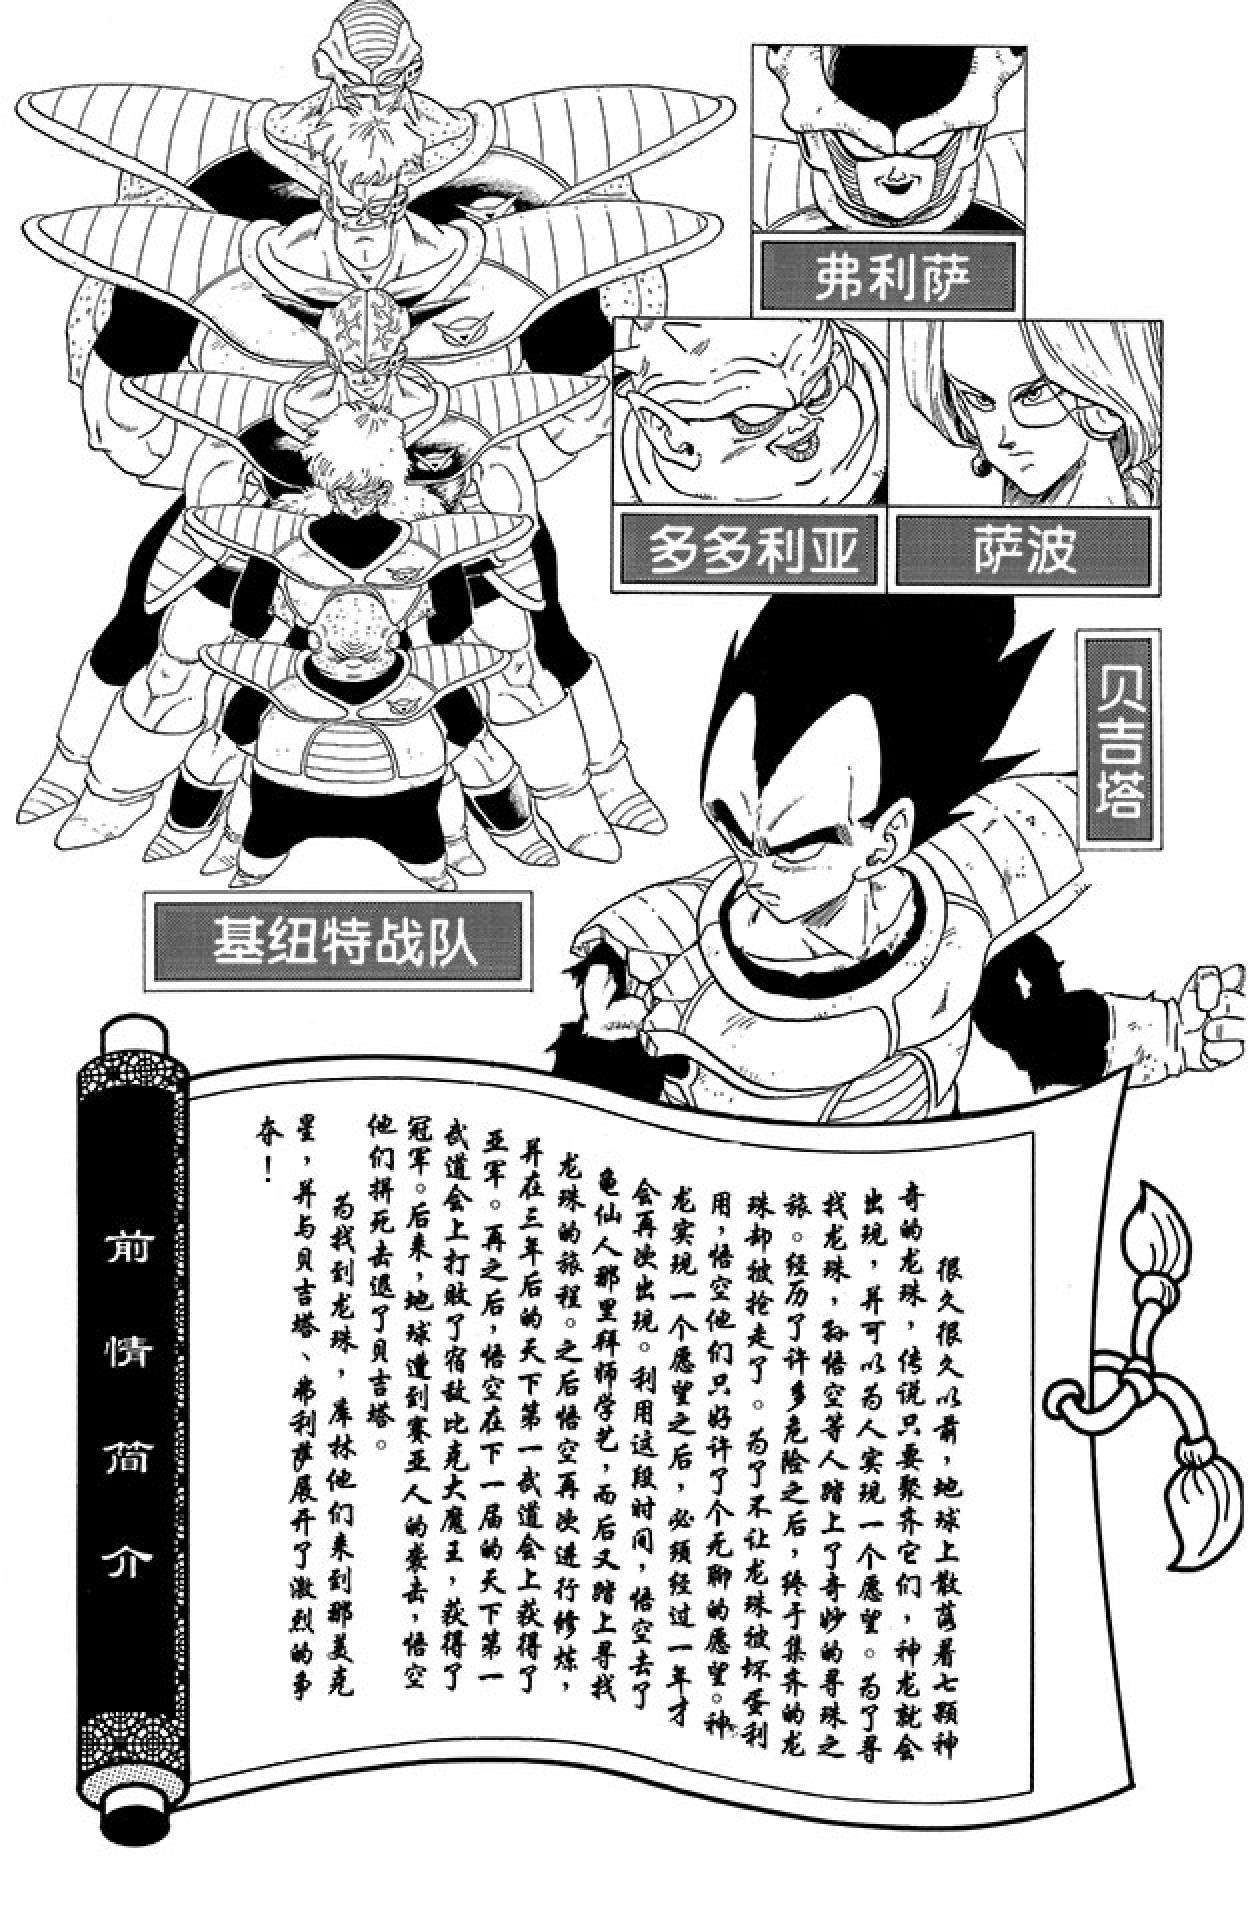 弗利萨
多多利亚
萨波
贝吉塔
基纽特战队
前情简介
很久很久以前，地球上散落着七颗神
奇的龙珠，传说只要聚齐它们，神龙就会
出现，并可以为人实现一个愿望。为了寻
找龙珠，孙悟空等人踏上了奇妙的寻珠之
旅。经历了许多危险之后，终于集齐的龙
珠却被抢走了。为了不让龙珠被坏蛋利
用，悟空他们只好许了个无聊的愿望。神
龙实现一个愿望之后，必须经过一年才
会再次出现。利用这段时间，悟空去了
龟仙人那里拜师学艺，而后又踏上寻找
龙珠的旅程。之后悟空再次进行修炼，
并在三年后的天下第一武道会上获得了
亚军。再之后，悟空在下一届的天下第一
武道会上打败了宿敌比克大魔王，获得了
冠军。后来，地球遭到赛亚人的袭击，悟空
他们拼死击退了贝吉塔。
为找到龙珠，库林他们来到那美克
星，并与贝吉塔、弗利萨展开了激烈的争
夺！